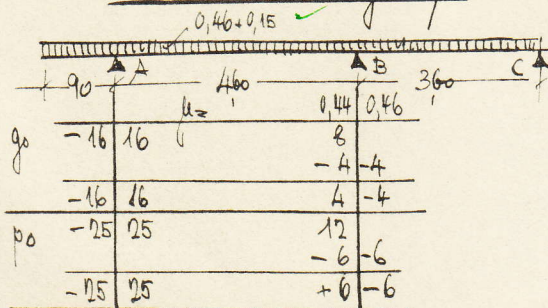 0,46+0,15
A B C
90 4,60 3,60
μ= 0,44 0,46
g₀ -16 16 8
-4 -4
-16 16 4 -4
p₀ -25 25 12
-6 -6
-25 25 +6 -6